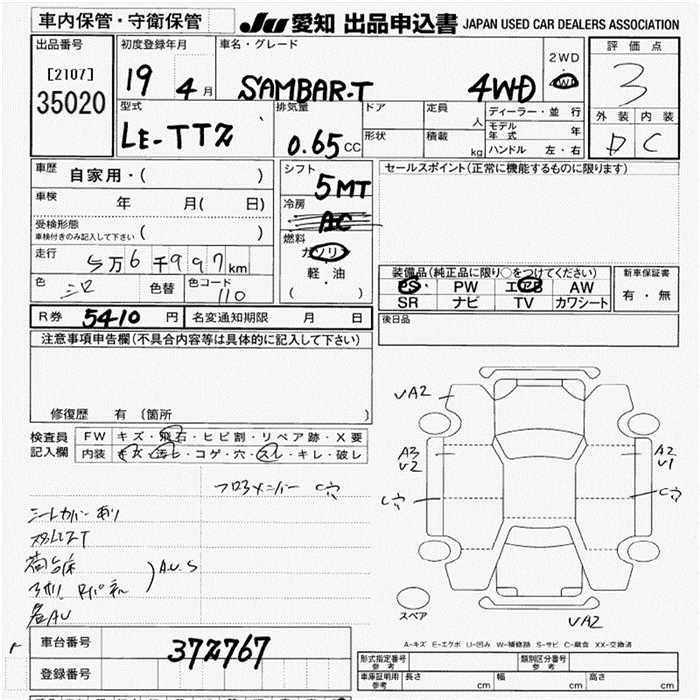 車内保管・守衛保管
JU 愛知 出品申込書 JAPAN USED CAR DEALERS ASSOCIATION
出品番号
[2107]
35020
初度登録年月
19 4 月
車名・グレード
SAMBAR-T 4WD
2WD
4WD
評価点
3
外装 内装
D C
型式
LE-TT2
排気量
0.65 CC
ドア
形状
定員
人
積載
kg
ディーラー・並行
モデル年式 年
ハンドル 左・右
車歴
自家用・( )
車検
年 月( 日)
受検形態
車検付きのみ記入して下さい ( )
走行
5万6千997km
色
シロ
色替
色コード
110
シフト
5MT
冷房
AC
燃料
ガソリン
軽・油
( )
セールスポイント(正常に機能するものに限ります)
装備品(純正品に限り○をつけてください)
PS PW エアB AW
SR ナビ TV カワシート
新車保証書
有・無
R券 5410 円
名変通知期限 月 日
後日品
注意事項申告欄(不具合内容等は具体的に記入して下さい)
修復歴 有 (箇所 )
検査員
記入欄
FW キズ・飛石・ヒビ割・リペア跡・X要
内装 キズ・汚レ・コゲ・穴・スレ・キレ・破レ
フロアメンバー C穴
シートカバー あり
荷台床
A.U.S
各AU
VA2
A3
V2
A2
V1
C穴
C穴
スペア
VA2
A-キズ E-エクボ U-凹み W-補修跡 S-サビ C-腐食 XX-交換済
車台番号
372767
登録番号
形式指定番号
参考
類別区分番号
参考
車庫証明用
参考
長さ cm 幅 cm 高さ cm